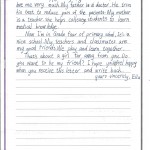 love me very much. My father is a doctor. He tries
his best to reduce pain of the patients. My mother
is a teacher. She helps students to learn
medical knowledge.
Now I'm in Grade four of primary school. It's a
nice school. My teachers and classmates are
my good friends. We play and learn together.
That's about a girl far away from you. Do you
want to be my friend? I'll be happy
when you receive the letter and write back.
Yours sincerely,